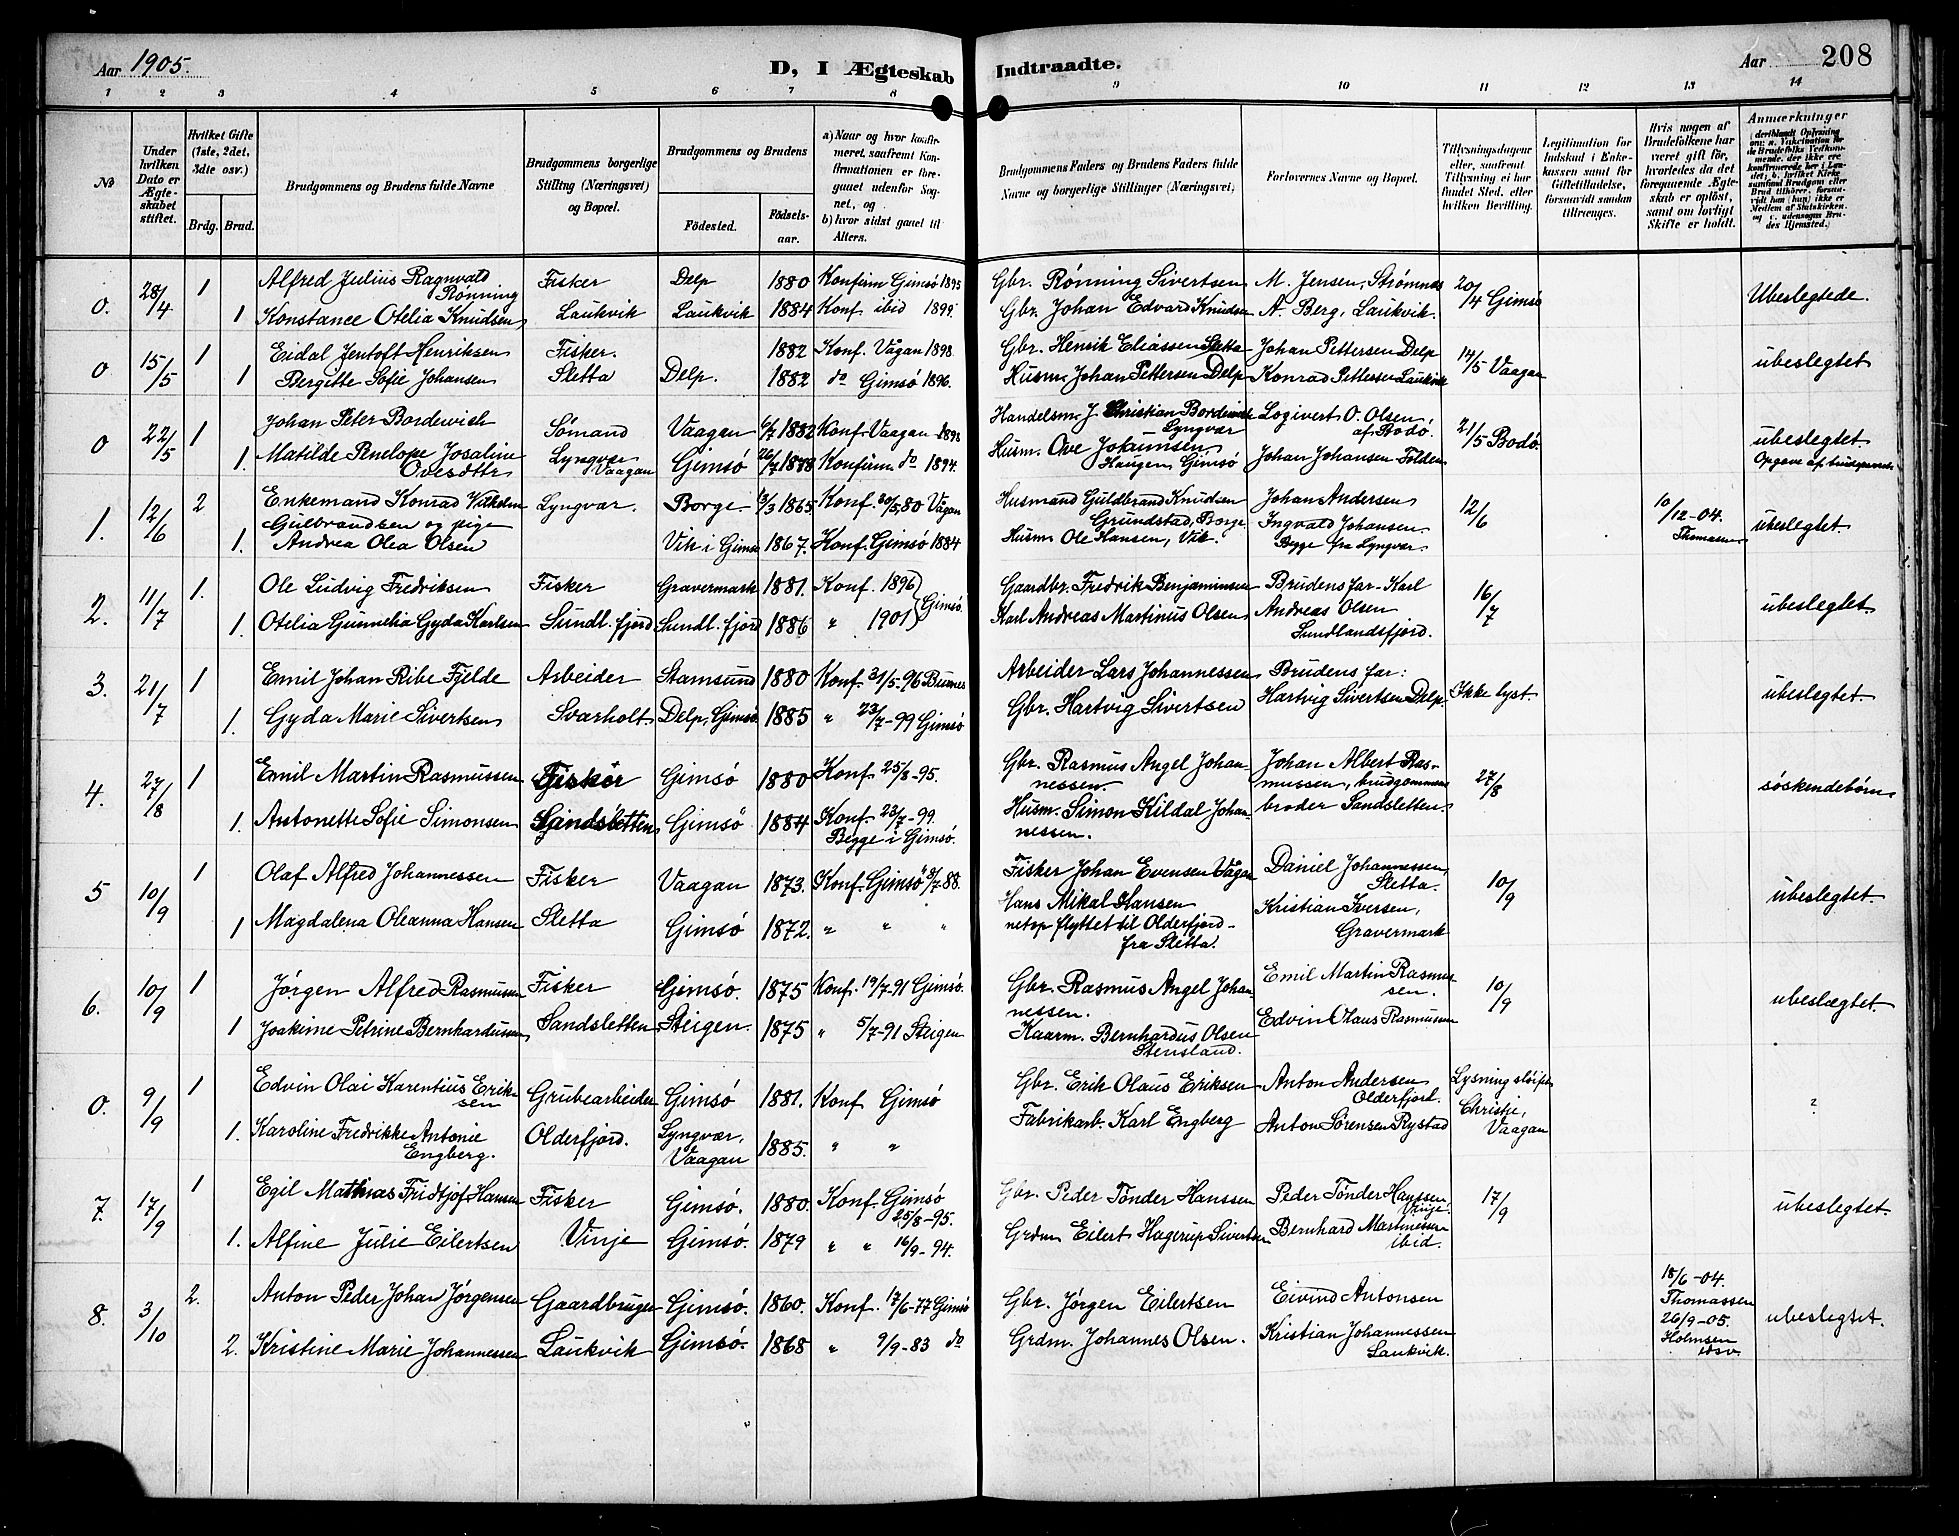 Aar 1905.
D, I Ægteskab Indtraadte.
Aar 208
1 2 3 4 5 6 7 8 9 10 11 12 13 14
No
Under hvilken Dato er Ægteskabet stiftet.
Hvilket Gifte (1ste, 2det, 3die osv.)
Brdg. Brud.
Brudgommens og Brudens fulde Navne
Brudgommens borgerlige Stilling (Næringsvei) og Bopæl.
Brudgommens og Brudens
Fødested.
Fødselsaar.
a) Naar og hvor konfirmeret, saafremt Konfirmationen er foregaaet udenfor Sognet, og
b) hvor sidst gaaet til Alters.
Brudgommens Faders og Brudens Faders fulde Navne og borgerlige Stillinger (Næringsvei)
Forlovernes Navne og Bopæl.
Tillysningsdagene eller, saafremt Tillysning ei har fundet Sted, efter hvilken Bevilling.
Legitimation for Indskud i Enkekassen samt for Giftetilladelse, forsaavidt saadan tiltrænges.
Hvis nogen af Brudefolkene har været gift før, hvorledes da det foregaaende Ægteskab er opløst, samt om lovligt Skifte er holdt.
Anmærkninger
0. 28/4 1 Alfred Julius Ragnvald Rønning Fisker Delp 1880 Konfirm Gimsö 1895 Gbr. Rønning Sivertsen M. Jensen, Strømnes 20/4 Gimsö Ubeslegtede.
1 Konstance Otelia Knudsen Laukvik Laukvik 1884 Konf ibid 1899. Gbr. Johan Edvard Knudsen A. Berg, Laukvik.
0 15/5 1 Eidal Jentoft Henriksen Fisker. 1882 Konf. Vågan 1898. Gbr. Henrik Eliassen Sletta Johan Pettersen Delp 14/5 Vaagan ubeslegtet
1 Bergitte Sofie Johansen Sletta Delp. 1882 do Gimsö 1896. Husm. Johan Pettersen Delp Konrad Pettersen Laukvik
0 22/5 1 Johan Peter Bordewich Sømand Vaagan 6/7 1882 Konf. Vaagan 1898 Handelsm. J Christian Bordewick Lyngvær Logivert O. Olsen, af Bodö. 21/5 Bodö. ubeslegtet
1. Matilde Penelope Josaline Ovesdttr Lyngvær Vaagan Gimsö 26/7 1878 Konfirm do 1894. Husm. Ove Jokumsen Haugen, Gimsö Johan Johansen Folden Opgave af brudeparret
1. 12/6 2 Enkemand Konrad Vilhelm Gulbrandsen og pige Lyngvær. Borge 13/3 1865 Konf. 30/5 80 Vågan Husmand Guldbrand Knudsen Grundstad, Borge Johan Andersen 12/6 10/12-04. Thomassen ubeslegtet
1. Andrea Olea Olsen Vik i Gimsö 1867. Konf. Gimsö 1884 Husm. Ole Hansen, Vik. Ingvald Johansen Begge fra Lyngvær.
2. 11/7 1. Ole Ludvig Fredriksen Fisker Gravermark 1881. Konf. 1896 Gimsö. Gaardbr. Fredrik Benjaminsen Brudens far - Karl 16/7 ubeslegtet
1. Otelia Gunnelia Gyda Karlsen Sundl. fjord Sundl. fjord 1886 " 1901 Karl Andreas Martinus Olsen Andreas Olsen Sundlandsfjord.
3. 21/7 1 Emil Johan Ribe Fjelde Arbeider Stamsund 1880 Konf. 31/5-96 Buxnes Arbeider Lars Johannessen Brudens far: Ikke lyst. ubeslegtet
1. Gyda Marie Sivertsen Svarholt. Delp, Gimsö 1885 " 23/7-99 Gimsö Gbr. Hartvig Sivertsen Hartvig Sivertsen Delp.
4. 27/8 1 Emil Martin Rasmussen Fisker Gimsö 1880 Konf. 25/8-95. Gbr. Rasmus Angel Johannessen. Johan Albert Rasmussen, brudgommens 27/8 søskendebörn
1. Antonette Sofie Simonsen Sandsletten Gimsö 1884 Konf. 23/7-99. Begge i Gimsö. Husm. Simon Kildal Johannessen. broder Sandsletten.
5 10/9 1 Olaf Alfred Johannessen Fisker Vaagan 1873. Konf. Gimsö 8/7 88. Fisker Johan Evensen Vågan Daniel Johannessen, Sletta. 10/9 ubeslegtet.
1 Magdalena Oleanna Hansen Sletta Gimsö 1872. " " " Hans Mikal Hansen netop flyttet til Olderfjord - fra Sletta. Kristian Iversen, Gravermark
6. 10/9 1 Jørgen Alfred Rasmussen Fisker Gimsö. 1875 Konf. 19/7-91 Gimsö. Gbr. Rasmus Angel Johannessen. Emil Martin Rasmussen. 10/9 ubeslægtet
1 Joakime Petrine Bernhardussen Sandsletten Steigen. 1875 " 5/7-91 Steigen Kaarm. Bernhardus Olsen Stensland. Edvin Olaus Rasmussen
0. 9/9 1 Edvin Olai Karentius Eriksen Grubearbeider Gimsö 1881. Konf Gimsö Gbr. Erik Olaus Eriksen Anton Andersen Olderfjord. Lysning sløifet ?
1. Karoline Fredrikke Antonie Engberg. Olderfjord. Lyngvær, Vaagan 1885. " " Fabrikarb. Karl Engberg Anton Sørensen Rystad Christie, Vaagan
7. 17/9 1 Egil Mathias Fridtjof Hansen Fisker Gimsö. 1880. Konf. Gimsö 25/8-95. Gbr. Peder Tønder Hanssen Peder Tønder Hanssen Vinje. 17/9 ubeslegtet.
1. Alfine Julie Eilertsen Vinje Gimsö. 1879 " " 16/9-94. Grdm Eilert Hagerup Sivertsen Bernhard Martinessen ibid.
8. 3/10 2. Anton Peder Johan Jørgensen Gaardbruger Gimsö. 1860. Konf. 17/6-77 Gimsö Gbr. Jørgen Eilertsen Eivind Antonsen 18/6-04. Thomassen ubeslegtet.
2. Kristine Marie Johannessen Laukvik Gimsö. 1868 " 9/9-83 do Grdm. Johannes Olsen. Kristian Johannessen Laukvik. 26/9-05. Holmsen